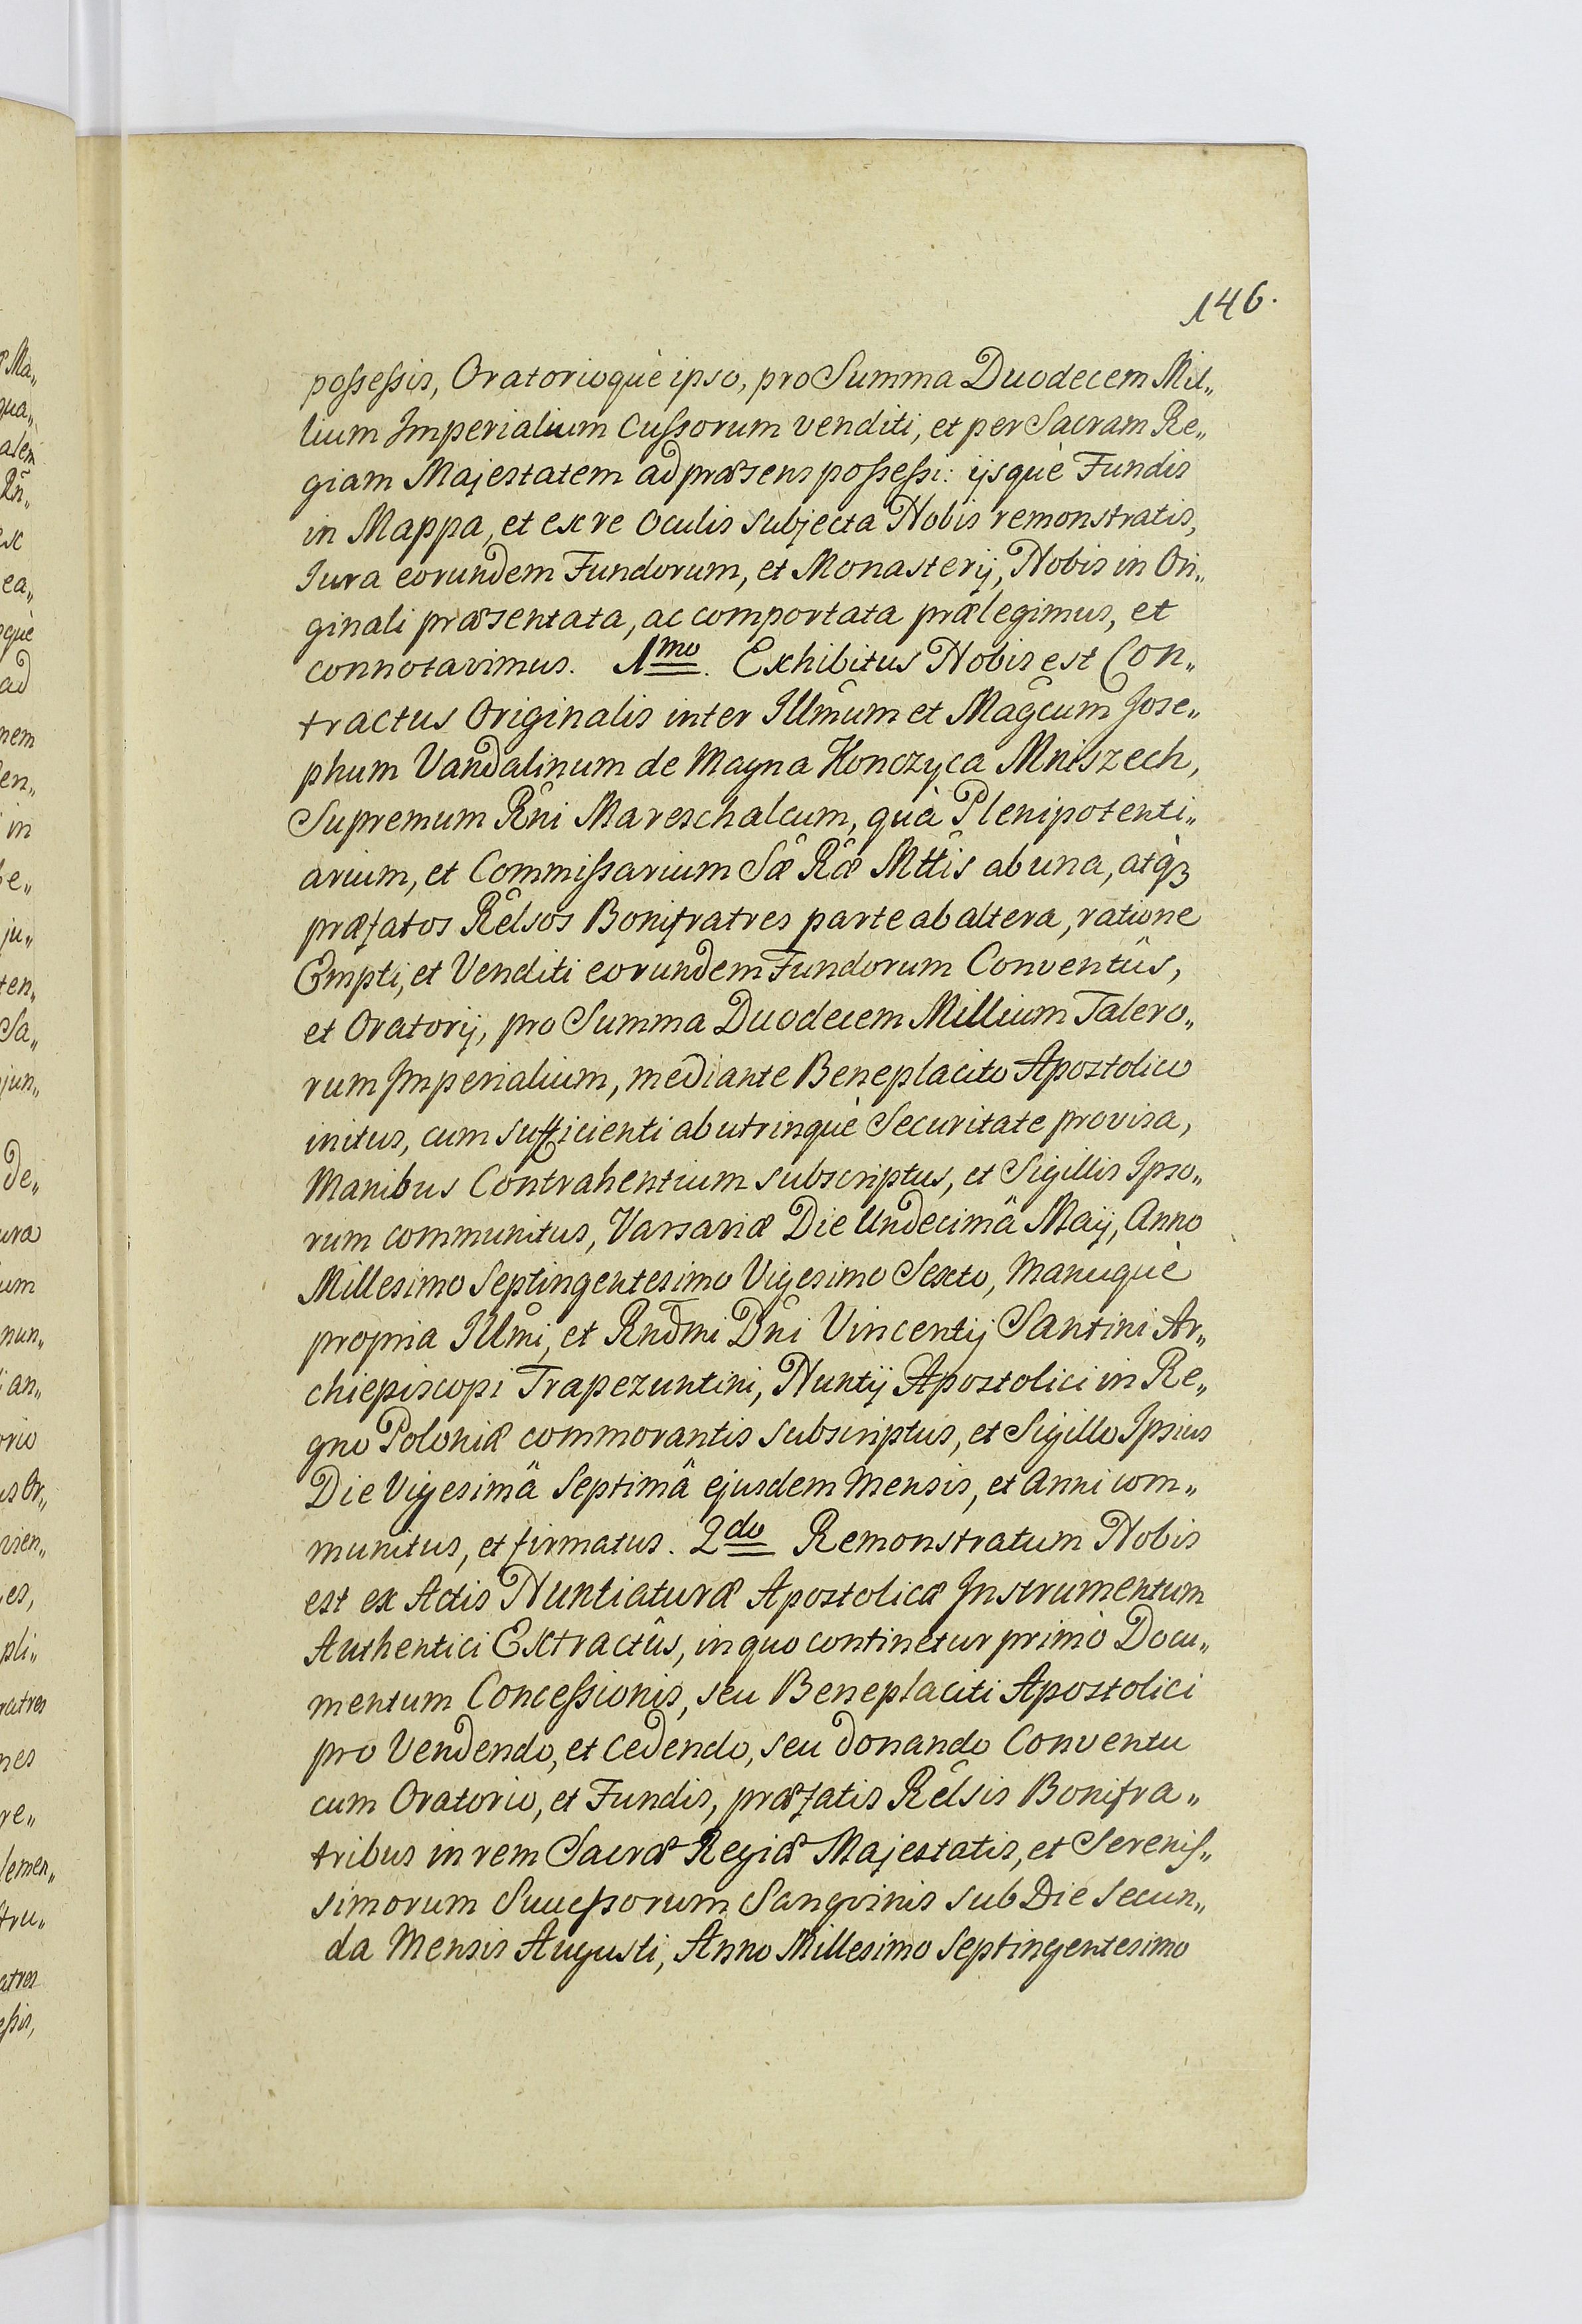 146.
possessis, Oratorioquè ipso, pro Summa Duodecem Mil„
lium Imperialium Cussorum venditi, et per Sacram Re„
giam Majestatem ad præsens possessi: ijsquè Fundis
in Mappa, et ex re Oculis subjecta Nobis remonstratis,
Jura eorundem Fundorum, et Monasterij, Nobis in Ori„
ginali præsentata, ac comportata prælegimus, et
connotavimus. 1mo. Exhibitus Nobis est Con„
tractus Originalis inter Illm̂um et Magĉum Jose„
phum Vandalinum de Magna Konczyca Mniszech,
Supremum Rn̂i Mareschalcum, quà Plenipotenti„
arium, et Commissarium Sæ̂ Ræ̂ Mtt̂is ab una, atq̀3
præfatos Rel̂sos Bonifratres parte ab altera, ratione
Empti, et Venditi eorundem Fundorum Conventûs,
et Oratorij, pro Summa Duodecem Millium Talero„
rum Imperialium, mediante Beneplacito Apostolico
initus, cum sufficienti ab utrinquè Securitate provisa,
Manibus Contrahentium subscriptus, et Sigillis Ipso„
rum communitus, Varsaviæ Die Undecimâ Maij, Anno
Millesimo Septingentesimo Vigesimo Sexto, Manuquè
propria Illm̂i, et Rnd̄mi Dn̂i Vincentij Santini Ar„
chiepiscopi Trapezuntini, Nuntij Apostolici in Re„
gno Poloniæ commorantis subscriptus, et Sigillo Ipsius
Die Vigesimâ Septimâ ejusdem Mensis, et Anni com„
munitus, et firmatus. 2do Remonstratum Nobis
est ex Actis Nuntiaturæ Apostolicæ Instrumentum
Authentici Extractûs, in quo continetur primò Docu„
mentum Concessionis, seu Beneplaciti Apostolici
pro Vendendo, et Cedendo, seu donando Conventu
cum Oratorio, et Fundis, præfatis Rel̂sis Bonifra„
tribus in rem Sacræ Regiæ Majestatis, et Serenis„
simorum Successorum Sangvinis sub Die Secun„
da Mensis Augusti, Anno Millesimo Septingentesimo